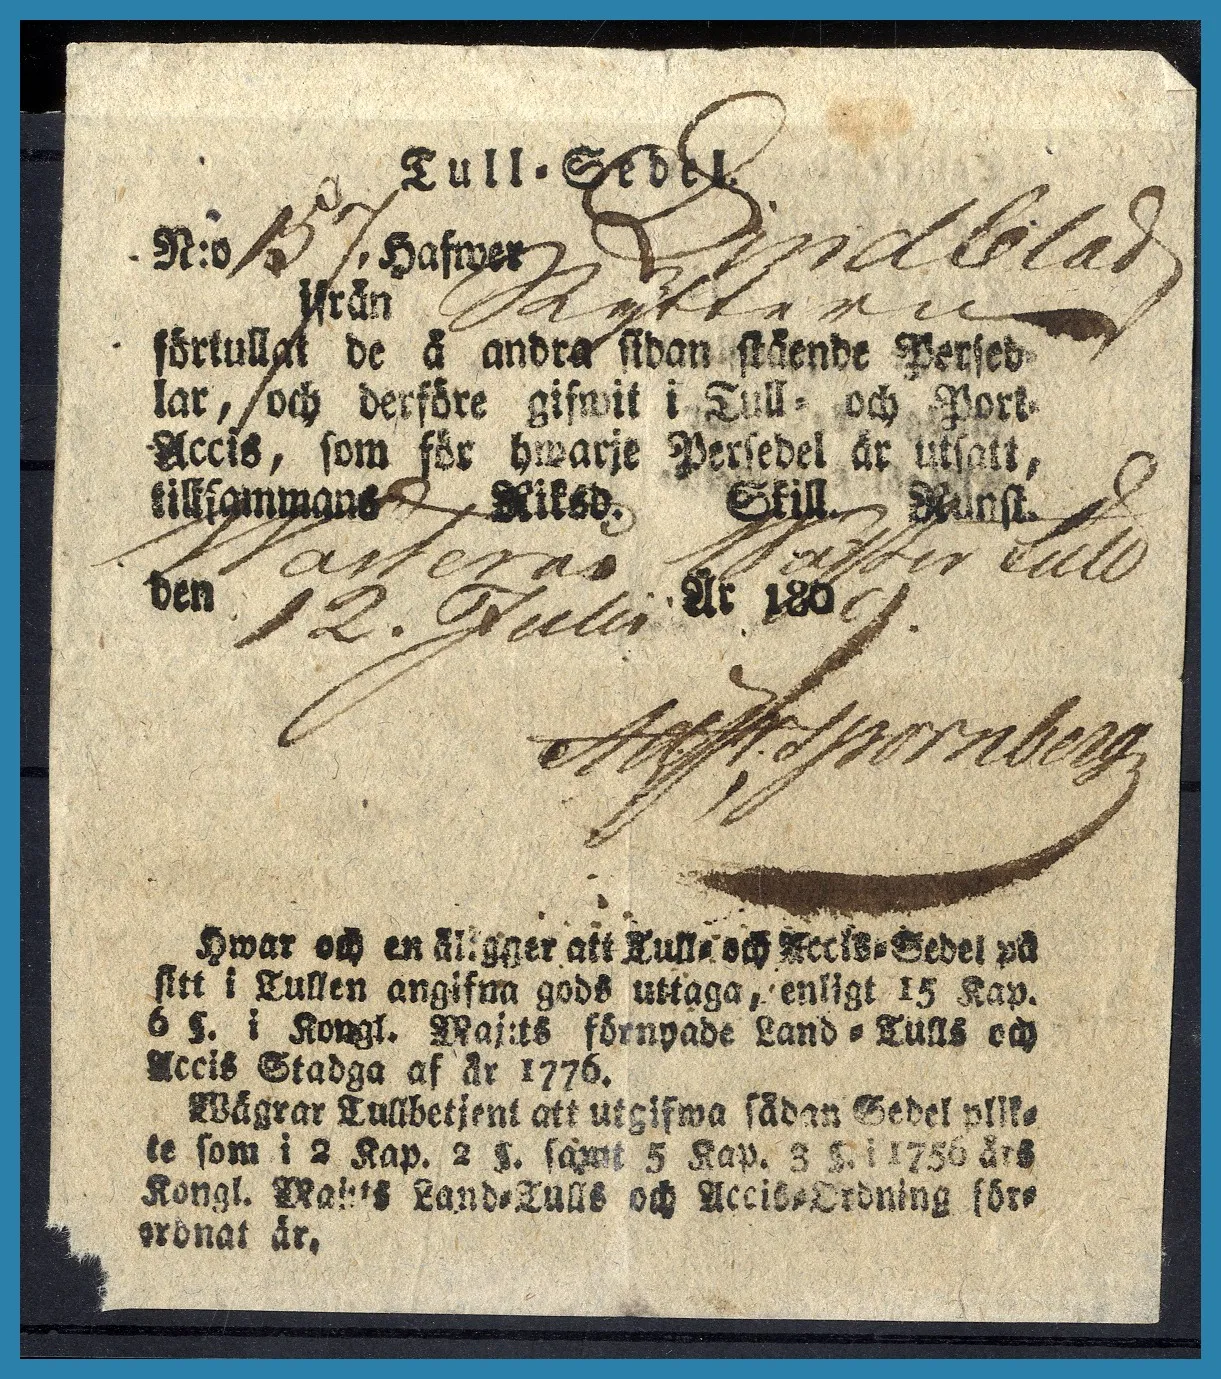 Tull-Sedel.
N:o 157. Hafwer Lindblad
ifrån Kyttern
förtullat de å andra sidan stående Persed-
lar, och derföre gifwit i Tull- och Port-
Accis, som för hwarje Persedel är utsatt,
tillsammans Riksd. Skill. Runst.
Westerås Wäster Tull
den 12. Julii År 1809.
Spornberg
Hwar och en åligger att Tull- och Accis-Sedel på
sitt i Tullen angifna gods uttaga, enligt 15 Kap.
6 §. i Kongl. Maj:ts förnyade Land-Tulls och
Accis Stadga af år 1776.
Wägrar Tullbetjent att utgifwa sådan Sedel plik-
te som i 2 Kap. 2 §. samt 5 Kap. 3 §. i 1756 års
Kongl. Maj:ts Land-Tulls och Accis-Ordning för-
ordnat är.